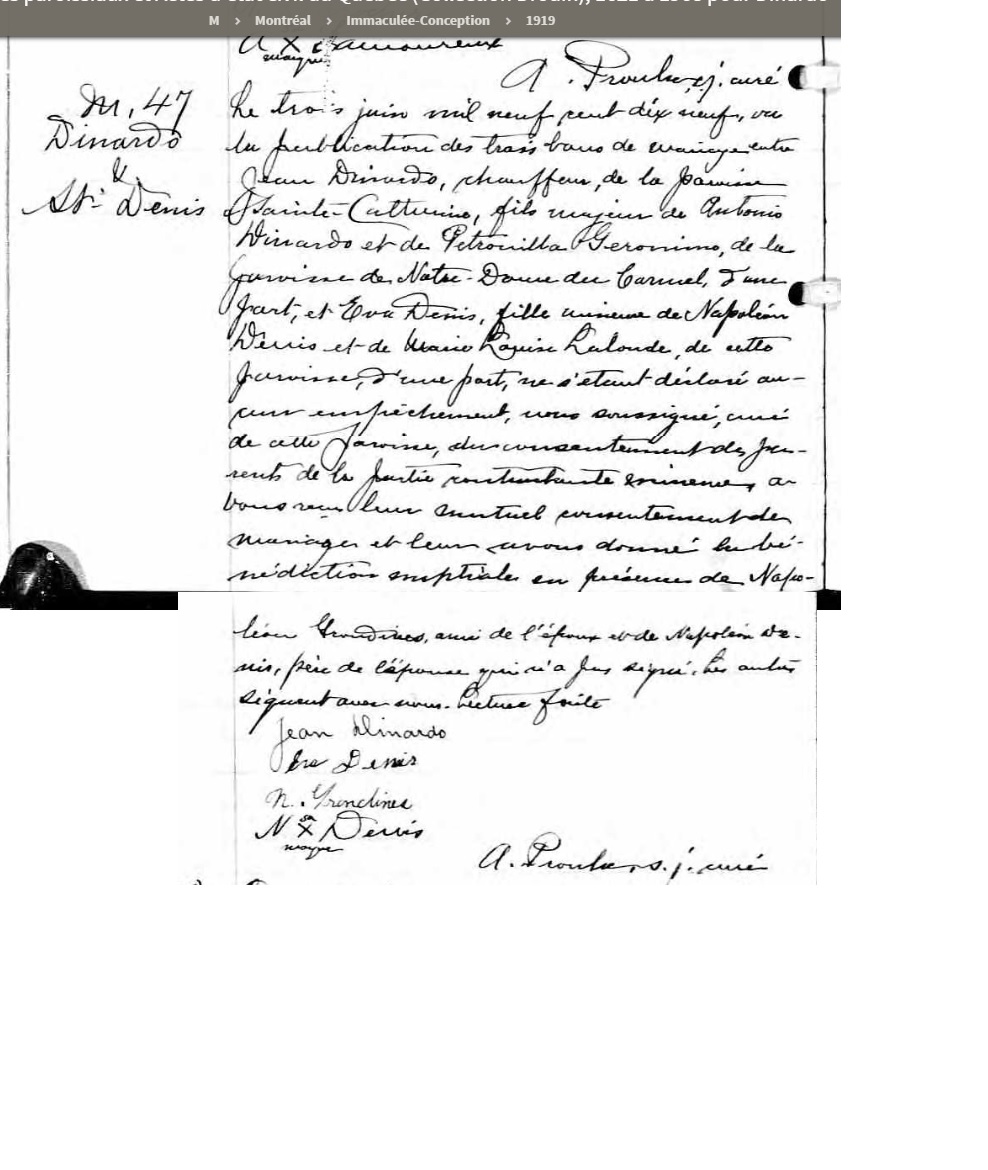 M > Montréal > Immaculée-Conception > 1919
A X Lamoureux
marque
A. Proulx, s.j. curé
M. 47
Dinardo
&
St. Denis
Le trois juin mil neuf cent dix neuf, vu
la publication des trois bans de mariage entre
Jean Dinardo, chauffeur, de la paroisse
Sainte-Catherine, fils majeur de Antonio
Dinardo et de Petronilla Geronimo, de la
paroisse de Notre-Dame du Carmel, d'une
part, et Eva Denis, fille mineure de Napoléon
Denis et de Marie Louise Lalonde, de cette
paroisse, d'une part, ne s'étant déclaré au-
cun empêchement, nous soussigné, curé
de cette paroisse, du consentement des pa-
rents de la partie contractante mineure, a-
vons reçu leur mutuel consentement de
mariage et leur avons donné la bé-
nédiction nuptiale en présence de Napo-
léon Grondines, ami de l'époux et de Napoléon De-
nis, père de l'épouse qui n'a pas signé. Les autres
signent avec nous. Lecture faite
Jean Dinardo
Eva Denis
N. Grondines
N sa X Denis
marque
A. Proulx, s.j. curé